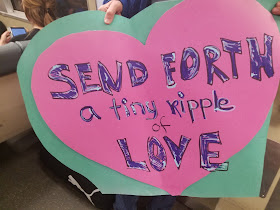 SEND FORTH
a tiny ripple
of
LOVE